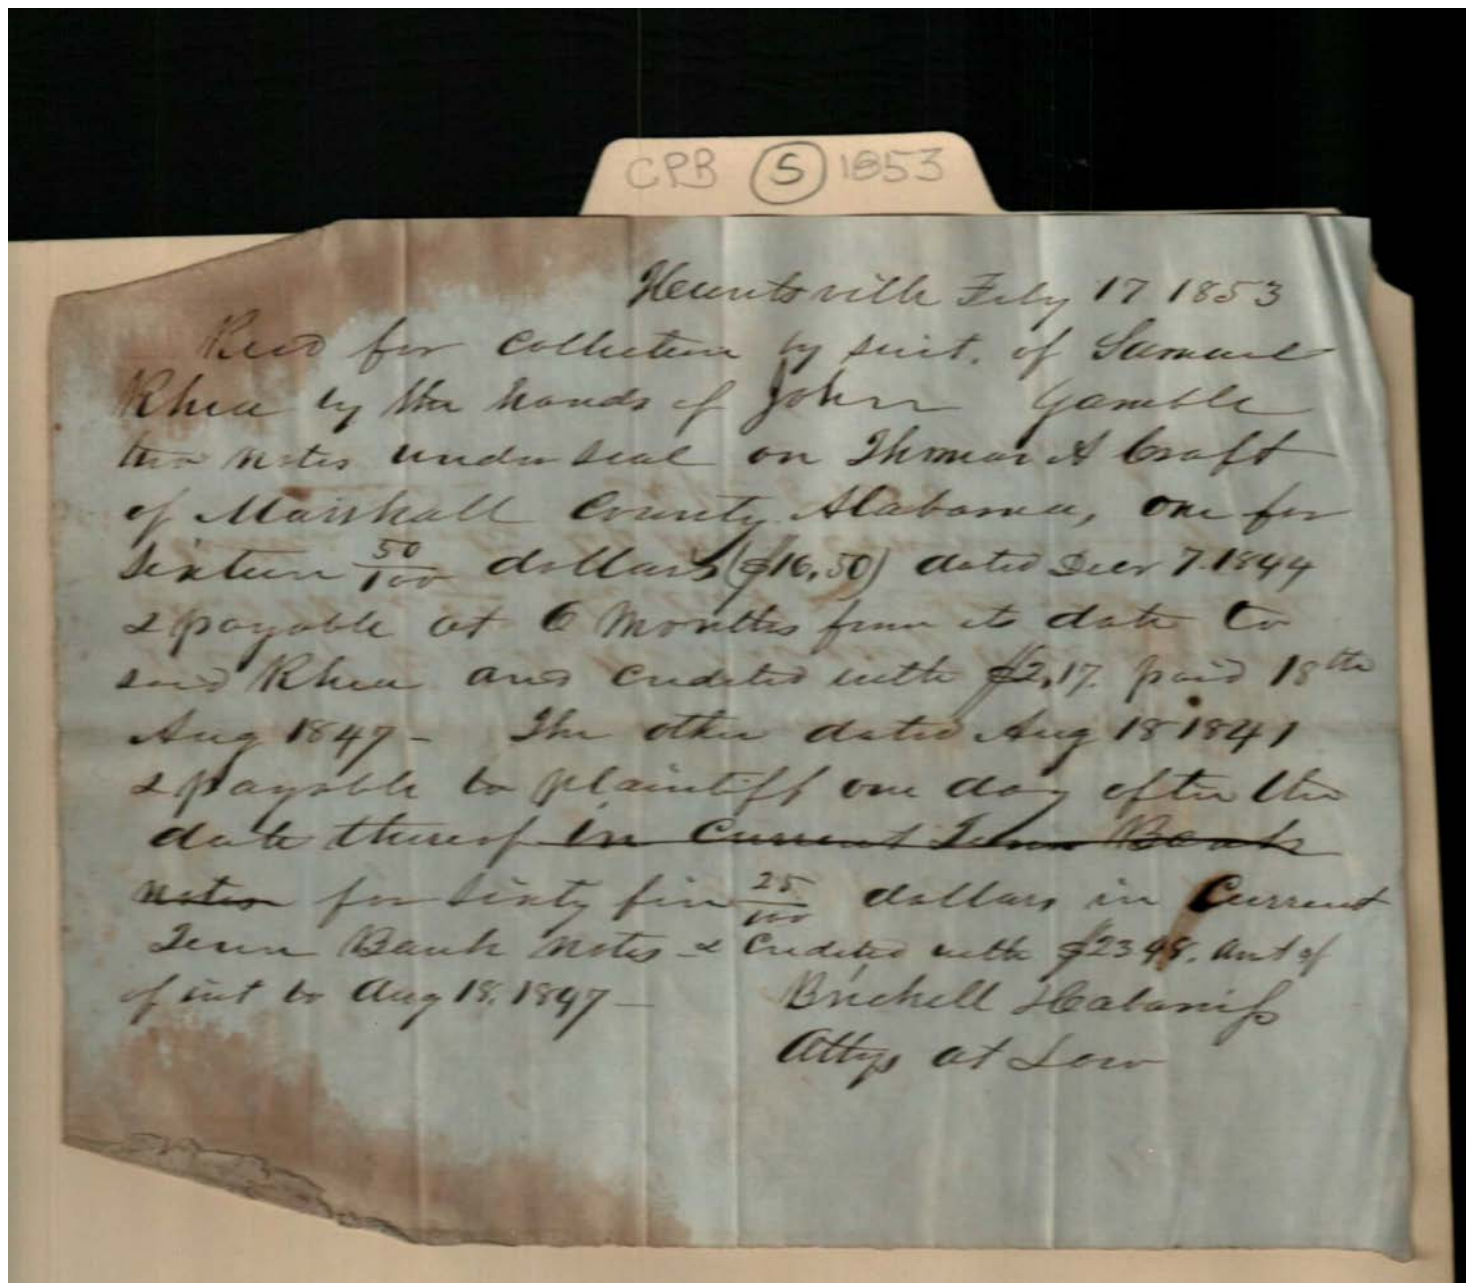 CPB S 1853
Huntsville Feby 17 1853
Recd for Collection by suit. of Samuel
Rhea by the hands of John Gamble
two notes under seal on Thomas A Craft
of Marshall County Alabama, one for
Sixteen 50/100 dollars ($16,50) dated Decr 7. 1844
& payable at 6 Months from its date to
said Rhea and credited with $2,17. paid 18th
Aug 1847 - The other dated Aug 18 1841
& payable to plaintiff one day after the
date thereof in Current Tenn Bank
notes for sixty five 25/100 dollars in Current
Tenn Bank Notes & Credited with $23 98. amt of
of int to Aug 18. 1847 -
Brickell
Attys at Law